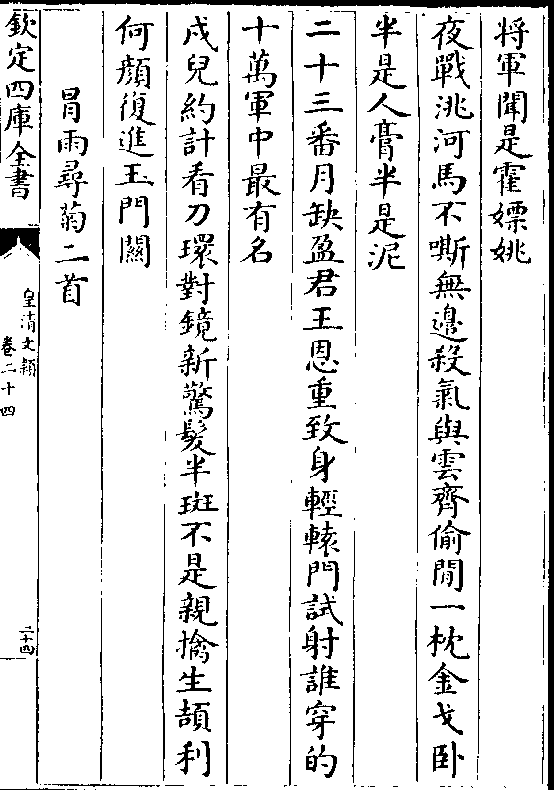 将軍聞是霍嫖姚
夜戰洮河馬不嘶無邊殺氣與雲齊偷閒一枕金戈卧
半是人膏半是泥
二十三番月缺盈君王恩重致身輕轅門試射誰穿的
十萬軍中最有名
戍兒約計看刀環對鏡新驚髮半斑不是親擒生頡利
何顔復進玉門關
冒雨尋菊二首
欽定四庫全書
皇清文穎
卷二十四
二十四